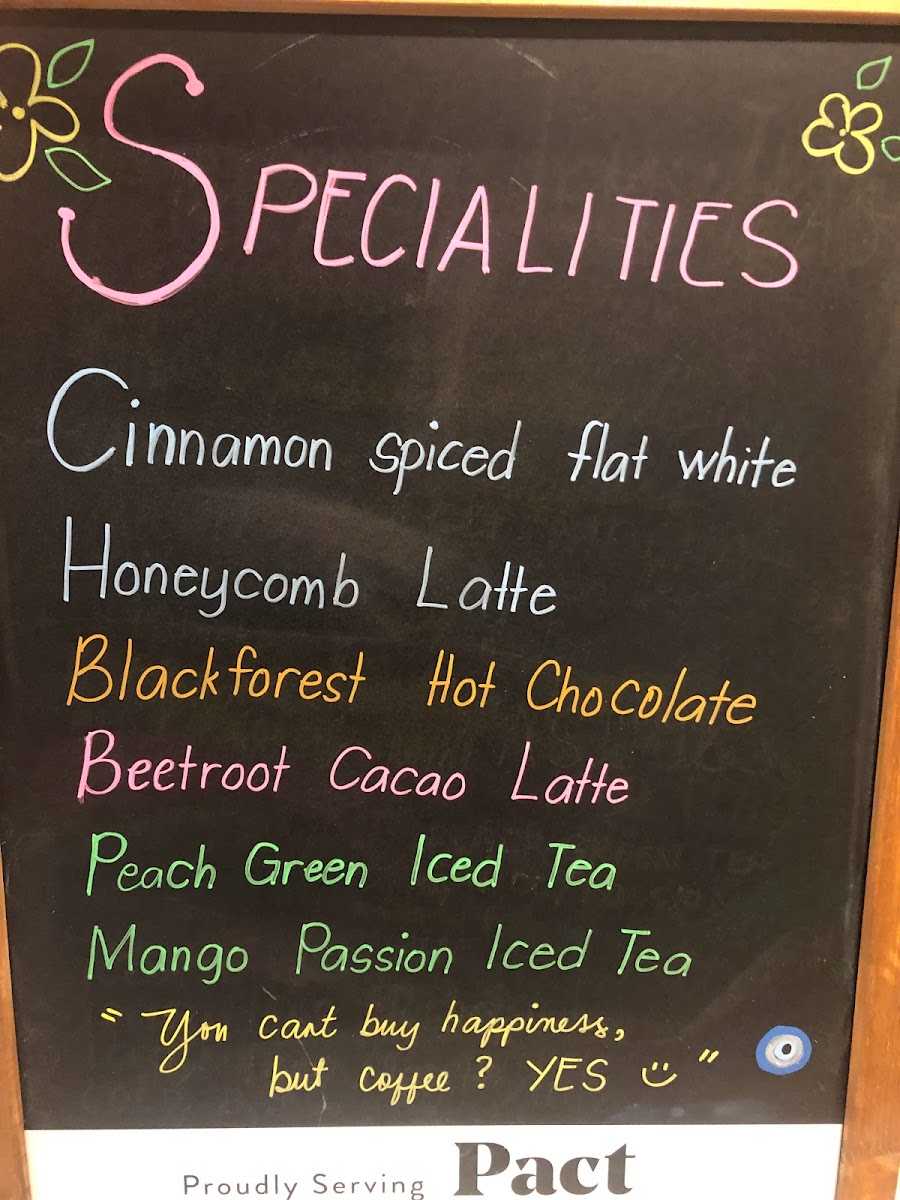 SPECIALITIES
Cinnamon spiced flat white
Honeycomb Latte
Blackforest Hot Chocolate
Beetroot Cacao Latte
Peach Green Iced Tea
Mango Passion Iced Tea
"You cant buy happiness,
but coffee? YES ☺"
Proudly Serving Pact